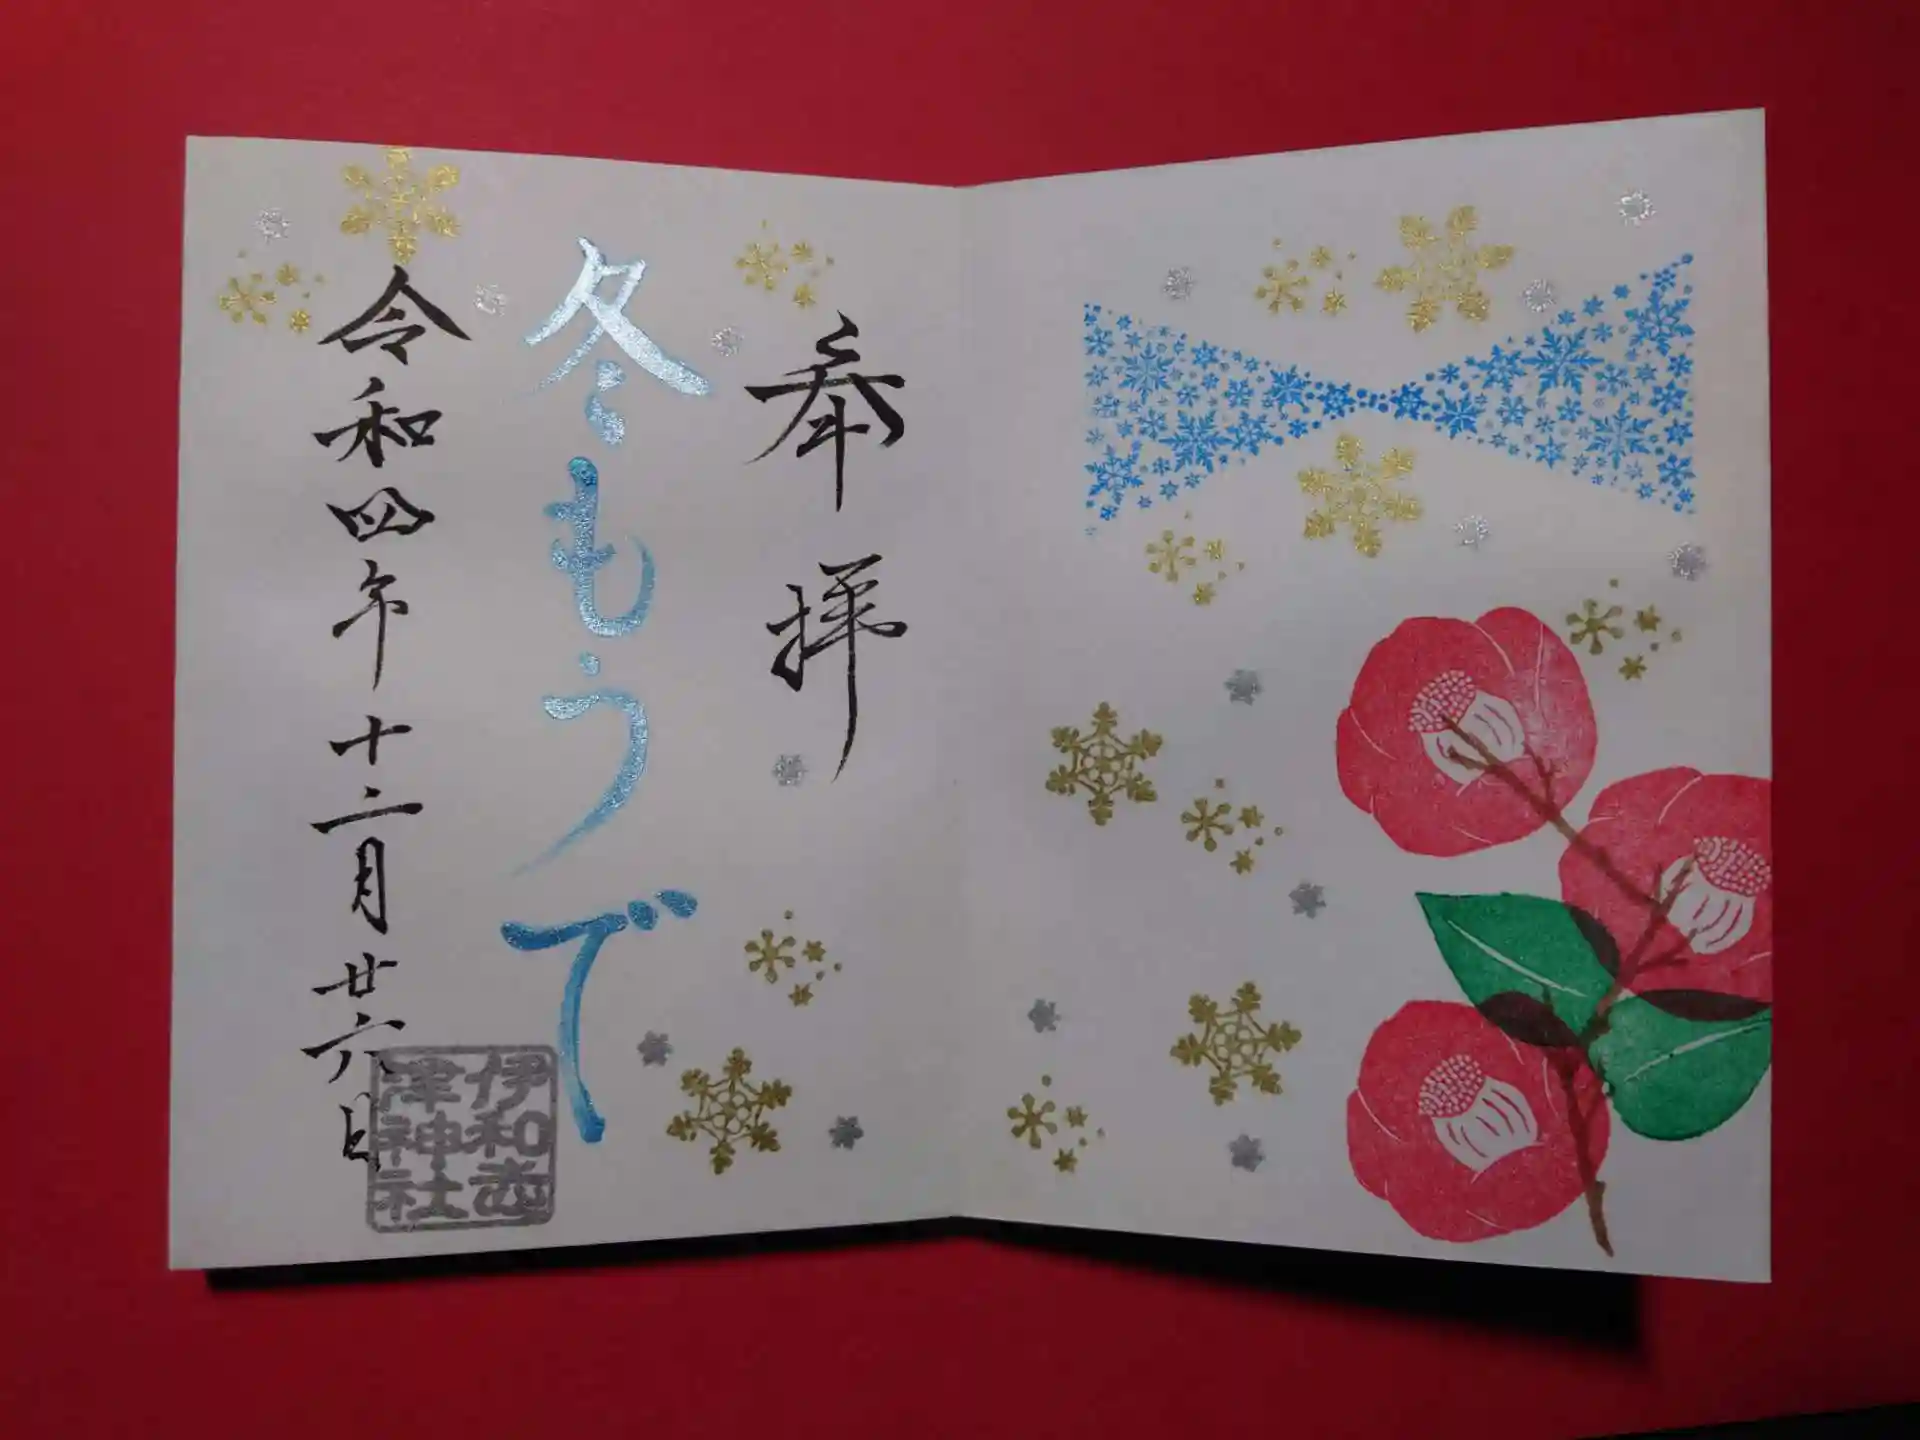 奉拝
冬もうで
令和四年十二月廿六日
伊和志
津神社